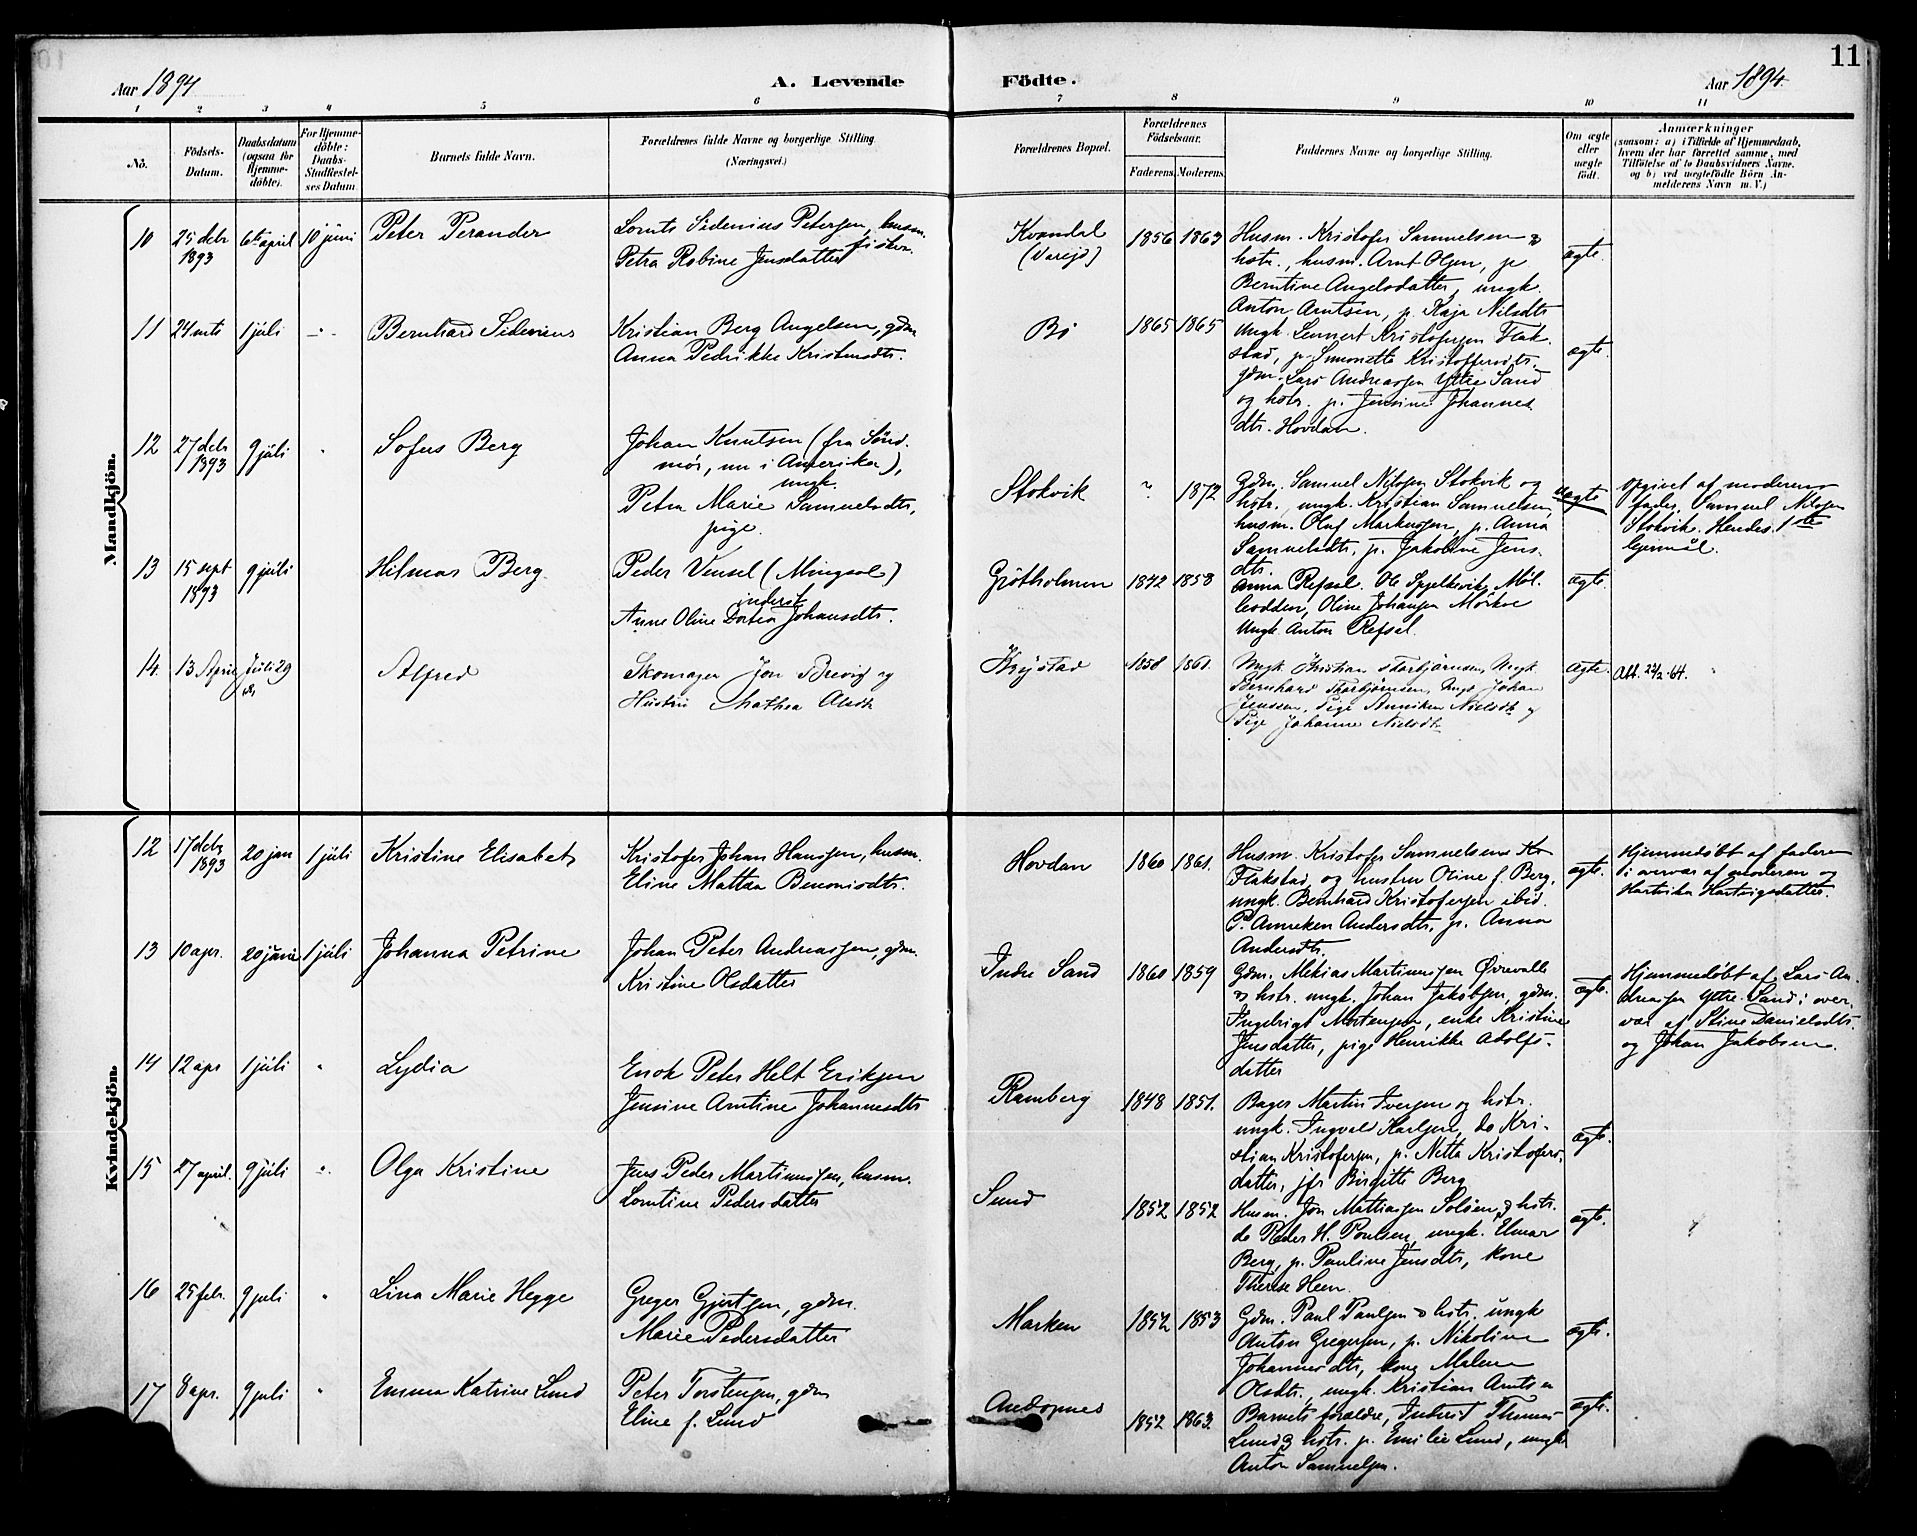 11
Aar 1894
A. Levende
Födte.
Aar 1894.
1 2 3 4 5 6 7 8 9 10 11
No.
Födsels-Datum.
Daabsdatum (ogsaa for Hjemmedöbte).
For Hjemmedöbte: Daabs-Stadfæstelses Datum
Barnets fulde Navn.
Forældrenes fulde Navne og borgerlige Stilling (Næringsvei.)
Forældrenes Bopæl.
Forældrenes Födselsaar.
Faderens. Moderens.
Faddernes Navne og borgerlige Stilling.
Om ægte eller uægte födt.
Anmærkninger
(saasom: a) i Tilfælde af Hjemmedaab,
hvem der har forrettet samme, med
Tilföielse af to Daabsvidners Navne,
og b) ved uegtefödte Börn An-
melderens Navn m. V.)
Mandkjön.
10 25 decbr 1893 6te april 10 juni Peter Perander
Lornts Sidenius Petersen, husm. fisker.
Petra Robine Jensdatter
Kvandal
(Vareid)
1856 1863
Husm. Kristofer Samuelsen &
hstr., husm. Arnt Olsen, p
Berntine Angelsdatter, ungk.
Anton Arntsen, p. Kaja Nilsdtr
ægte.
11 24 mts 1 juli Bernhard Sidenius
Kristian Berg Angelsen, gdm
Anna Pedrikke Kristensdtr.
Bø
1865 1865
Ungk. Lennert Kristofersen Flak-
stad, p. Simonette Kristoffersdtr.
gdm. Lars Andreassen Yttre Sand
og hstr. p. Jensine Johannes
dtr. Hovdan.
ægte.
12 27 decbr 1893 9 juli Sofus Berg
Johan Knutsen (fra Sønd-
mør, nu i Amerika),
ungk.
Petra Marie Samuelsdtr,
pige.
Stokvik
? 1872
gdm. Samuel Nilsen Stokvik og
hstr., ungk. Kristian Samuelsen,
husm. Oluf Markussen, p. Anna
Samuelsdtr, p. Jakobine Jens-
dtr.
uægte
opgivet af moderens
fader, Samuel Nilsen
Stokvik. Hendes 1ste
leiermål.
13 15 sept 1893 9 juli Hilmar Berg
Peder Vensel (Mingsol)
inderst
Anne Oline Dortea Johansdtr.
Grøtholmen
1842 1858
Anna Refsal. Ole Spjelkevik, Møl-
lodden, Oline Johansen
Ungk. Anton Refsal.
ægte.
14. 13 April Juli 29 Alfred
Skomager Jon Brevig og
Hustru Mathea Olsdtr
Krystad
1858 1860.
Ungk. Kristian Thorbjørnsen, Ungk.
Bernhard Thorbjørnsen, Ungk Johan
Jenssen, Pige Anniken Nielsdtr og
Pige Johanne Nielsdtr
ægte.
Att. 24/2-64.
Kvindekjön.
12 17 decbr 1893 20 jan 1 juli Kristine Elisabet
Kristofer Johan Hanssen, husm.
Eline Mattea Benonisdtr.
Hovdan
1860 1861.
Husm. Kristofer Samuelsen
Flakstad, og hustru Oline f. Berg,
ungk. Bernhard Kristofersen ibid.
P. Anneken Andersdtr, p. Anna
Andersdtr.
ægte.
Hjemmedøbt af faderen
i overvær af moderen og
Hartvika Hartvigsdatter.
13 10 apr. 20 juni 1 juli Johanna Petrine
Johan Peter Andreassen, gdm.
Kristine Olsdatter
Indre Sand
1860 1859
Gdm. Mekias Martinussen Øvrevalle
& hstr. ungk. Johan Jakobsen, gdm.
Ingebrigt Mortensen, enke Kristine
Jensdatter, pige Henrikke Adolfs-
datter
ægte.
Hjemmedøbt af Lars An-
dreassen Yttre Sand i over-
vær af Stine Danielsdtr.
og Johan Jakobsen.
14 12 apr 1 juli Lydia
Enok Peter Helt Eriksen
Jensine Arntine Johannesdtr
Ramberg
1848 1851.
Bager Martin Iversen og hstr.
ungk. Ingvald Karlsen, do Kri-
stian Kristofersen, p. Netta Kristofers-
datter, jfr Birgitte Berg
ægte.
15 27 april. 9 juli Olga Kristine
Jens Peder Martinussen, husm.
Lorntine Pedersdatter
Sund
1852 1852
Husm. Jon Mathiassen Soløen, & hstr.
do Peder H. Poulsen, ungk. Elmar
Berg, p. Pauline Jensdtr, kone
Therese Heen.
ægte.
16 25 febr. 9 juli Lina Marie Hegge
Greger Gjertsen, gdm.
Marie Pedersdatter
Marken
1852 1853
Gdm. Paul Paulsen & hstr. ungk
Anton Gregersen, p. Nikoline
Johannesdtr, kone Malene
Olsdtr., ungk. Kristian Arntsen
ægte.
17 8 apr. 9 juli Emma Katrine Lund
Peter Torstensen, gdm
Eline f. Lund
Andopnes
1852 1863.
Barnets forældre, Inderst Thomas
Lund & hstr. p. Emilie Lund, ungk
Anton Samuelsen.
ægte.